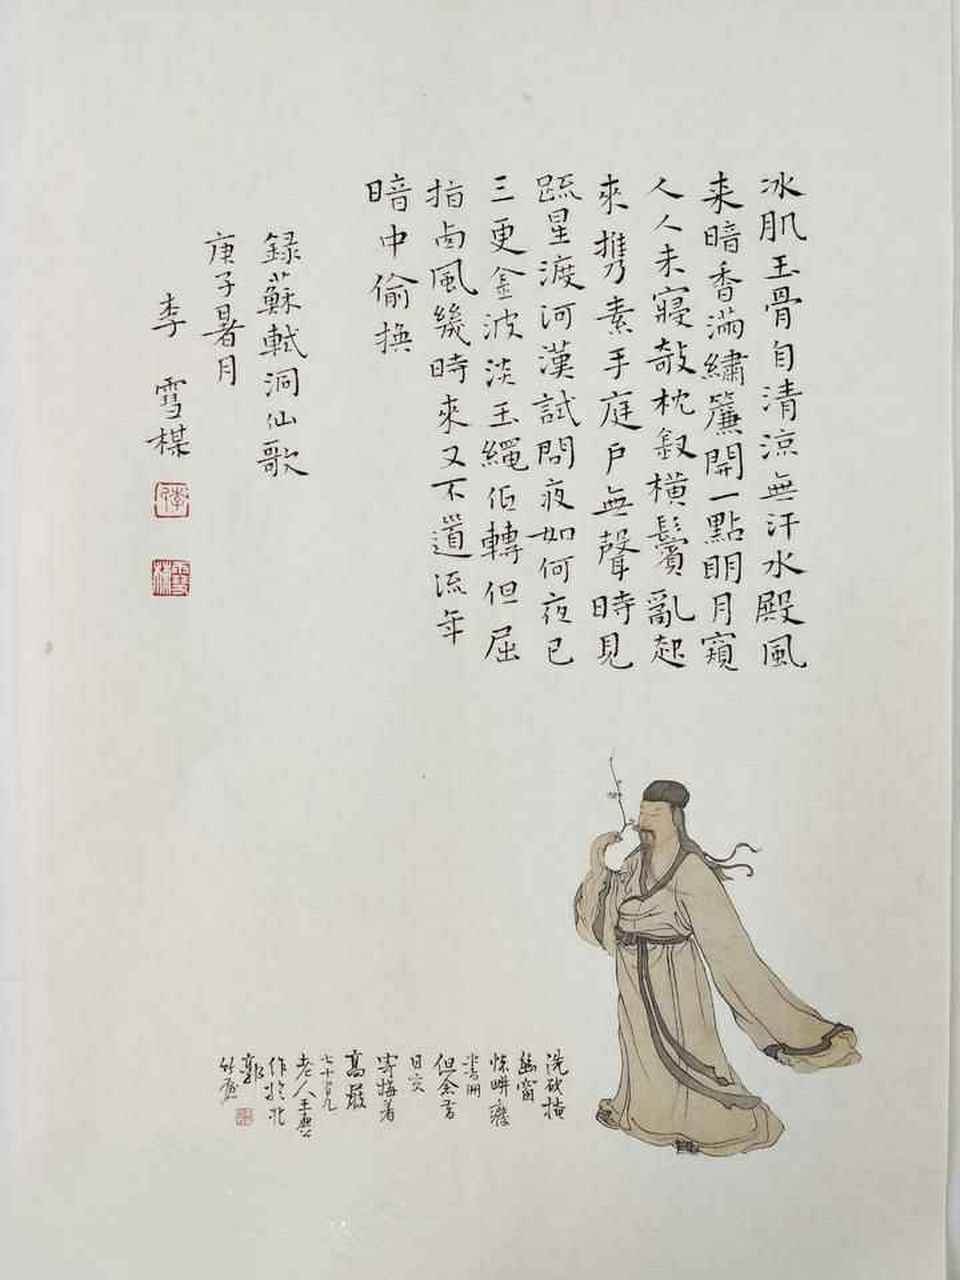 冰肌玉骨自清涼無汗水殿風
来暗香滿繡簾開一點明月窺
人人未寢敧枕釵橫鬢亂起
來携素手庭戶無聲時見
疏星渡河漢試問夜如何夜已
三更金波淡玉繩低轉但屈
指西風幾時來又不道流年
暗中偷換
錄蘇軾洞仙歌
庚子暑月
李雪楳
洗砍掩
幽窗
書冊
但余
寄梅着
高
七十
老人王
作於北
郭
竹